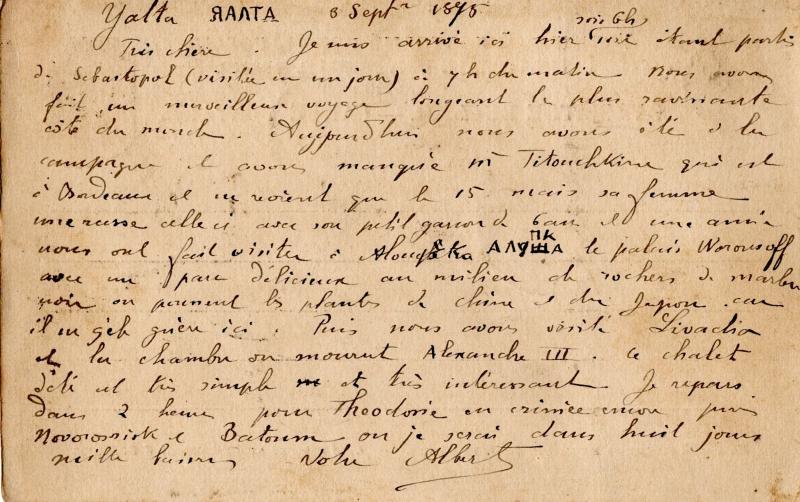 Yalta ЯАЛТА 8 Septre 1895
Très chère. Je suis arrivé ici hier soir 6h étant partis
de Sebastopol (visitée en un jour) à 7h du matin Nous avons
fait un merveilleux voyage longeant la plus ravissante
côte du monde. Aujourd'hui nous avons été à la
campagne et avons manqué Mr Titouchkine qui est
à Bordeaux et ne revient que le 15 mais sa femme
une russe celle ci avec son petit garçon de 6 ans et une amie
nous ont fait visiter à Aloupka АЛУПКА ША le palais Woronsoff
avec un parc délicieux au milieu de rochers de marbre
noir où poussent les plantes de Chine et du Japon car
il ne gèle guère ici. Puis nous avons visité Livadia
et la chambre où mourut Alexandre III. Ce chalet
d'été est très simple et très intéressant. Je repars
dans 2 heures pour Théodosie en Crimée encore puis
Novorossisk et Batoum où je serai dans huit jours
mille baisers Votre Albert